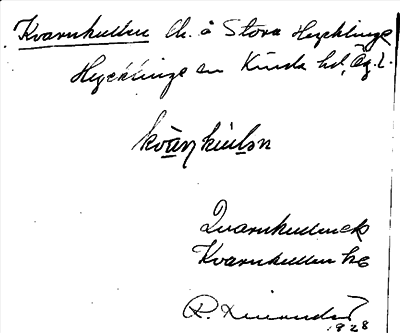 Kvarnkullen Ch. å Stora Hycklinge
Hycklinge sn Kinda hd, Ög. l.
Qvarnkullen ek
Kvarnkullen hs
R.
1928